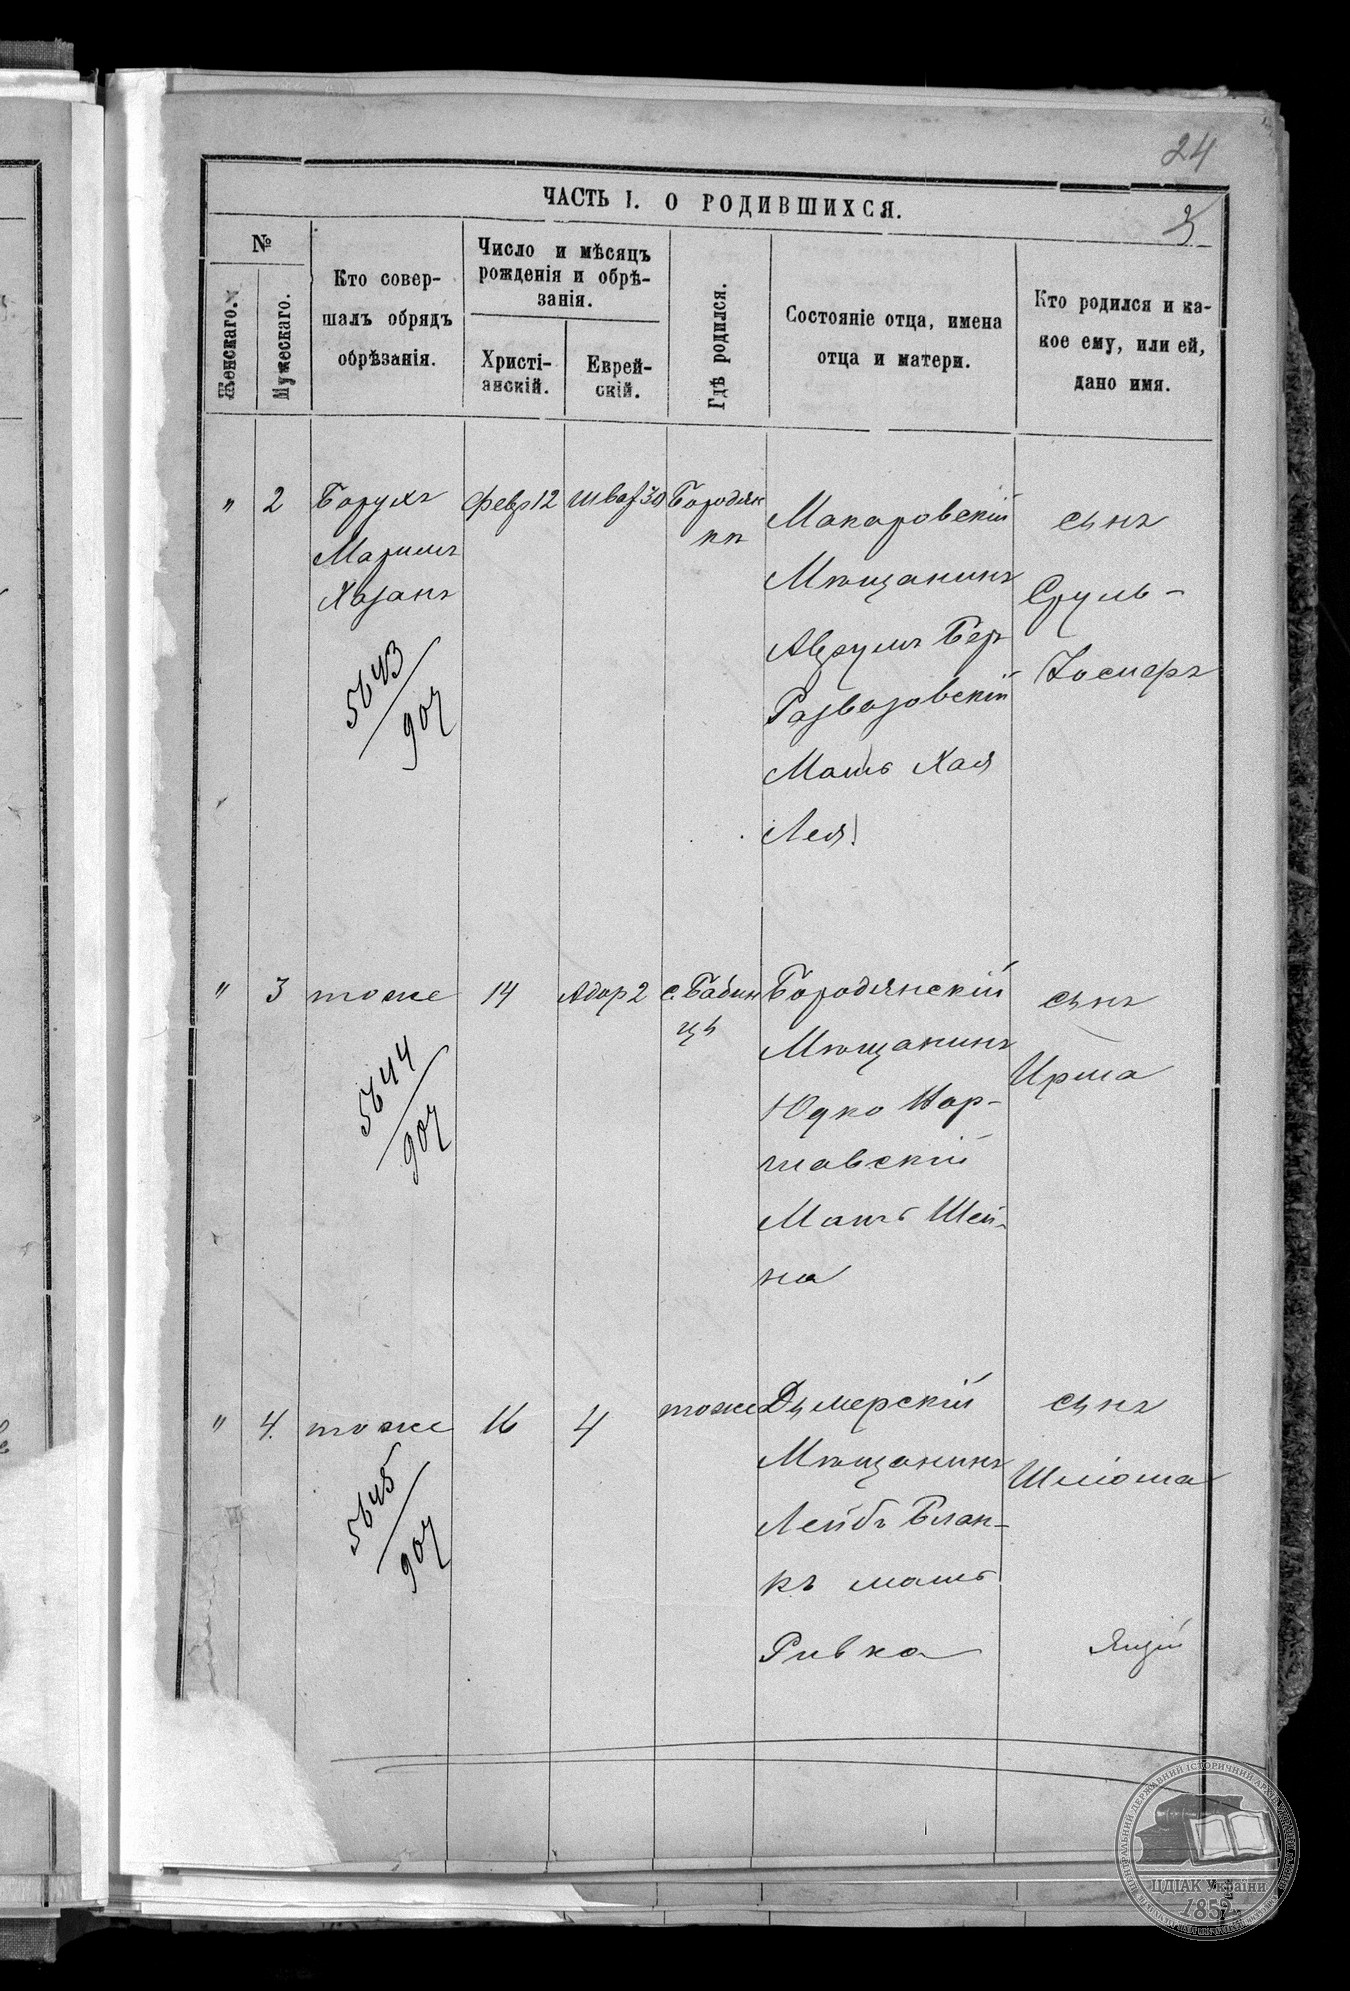 24
ЧАСТЬ I. О РОДИВШИХСЯ.
3
№
Женскаго.
Мужескаго.
Кто совер-
шалъ обрядъ
обрѣзанія.
Число и мѣсяцъ
рожденія и обрѣ-
занія.
Христі-
анскій.
Еврей-
скій.
Гдѣ родился.
Состояніе отца, имена
отца и матери.
Кто родился и ка-
кое ему, или ей,
дано имя.
" 2
Борухъ
Маримъ
Хазанъ
5643/907
Февр 12
Шват 30
Бородян
кѣ
Макаровскій
Мѣщанинъ
Авrумъ Бер
Развазовскій
Мать Хая
Лея
сынъ
Сруль-
Іосифъ
" 3
тоже
5644/907
14
Адар 2
с. Бабин
цѣ
Бородянскій
Мѣщанинъ
Юдко Нар-
шавскій
Мать Шей-
на
сынъ
Ирма
" 4.
тоже
5645/907
16
4
тоже
Дымерскій
Мѣщанинъ
Лейбъ Блан-
къ мать
Ривка
сынъ
Шліома
ЦДІАК України
1852